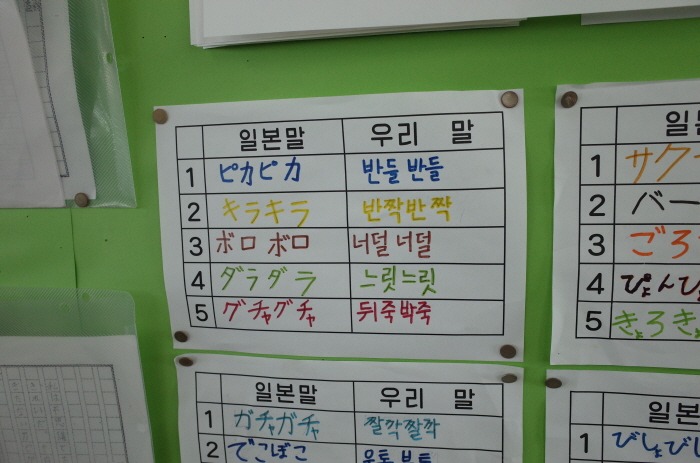 일본말 우리 말
1 ピカピカ 반들반들
2 キラキラ 반짝반짝
3 ボロボロ 너덜너덜
4 ダラダラ 느릿느릿
5 グチャグチャ 뒤죽박죽
일본말 우리 말
1 ガチャガチャ 짤깍짤깍
2 でこぼこ
일
1 サク
2 バー
3 ごろ
4 ぴょんぴ
5 きょろき
일본
1 びしょびし